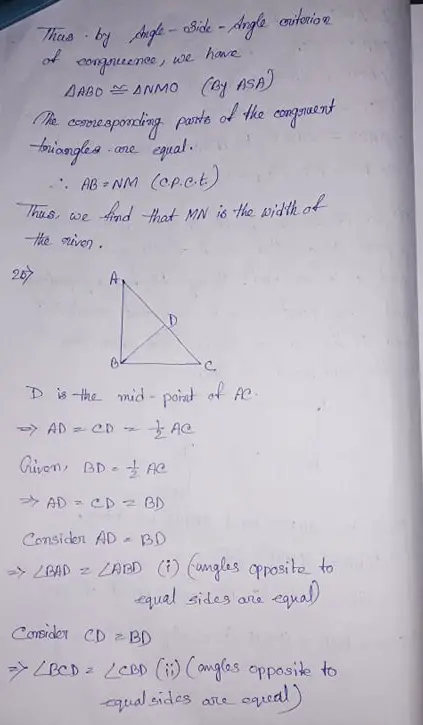 Thus by Angle-Side-Angle criterion
of congruence, we have
ΔABO ≅ ΔNMO (By ASA)
The corresponding parts of the congruent
triangles are equal.
∴ AB = NM (C.P.C.t.)
Thus, we find that MN is the width of
the river.
26)
A
D
B
C
D is the mid-point of AC.
⇒ AD = CD = 1/2 AC
Given, BD = 1/2 AC
⇒ AD = CD = BD
Consider AD = BD
⇒ ∠BAD = ∠ABD (i) (angles opposite to
equal sides are equal)
Consider CD = BD
⇒ ∠BCD = ∠CBD (ii) (angles opposite to
equal sides are equal)